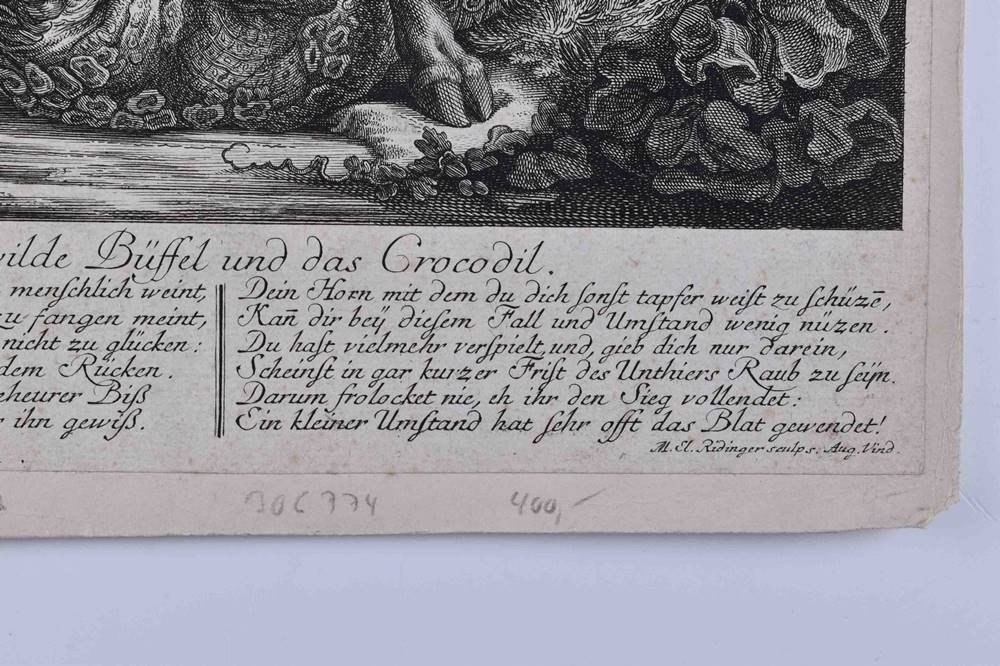 wilde Büffel und das Crocodil.
menſchlich weint,
zu fangen meint,
nicht zu glücken:
dem Rücken.
eheurer Biß
ihn gewiß.
Dein Horn mit dem du dich ſonſt tapfer weiſt zu ſchüzē,
Kan̄ dir beÿ dieſem Fall und Umſtand wenig nüzen.
Du haſt vielmehr verſpielt, und, gieb dich nur darein,
Scheinſt in gar kurzer Friſt des Unthiers Raub zu ſeÿn.
Darum frolocket nie, eh ihr den Sieg vollendet:
Ein kleiner Umſtand hat ſehr offt das Blat gewendet!
M. El. Ridinger sculps. Aug. Vind.
400,-